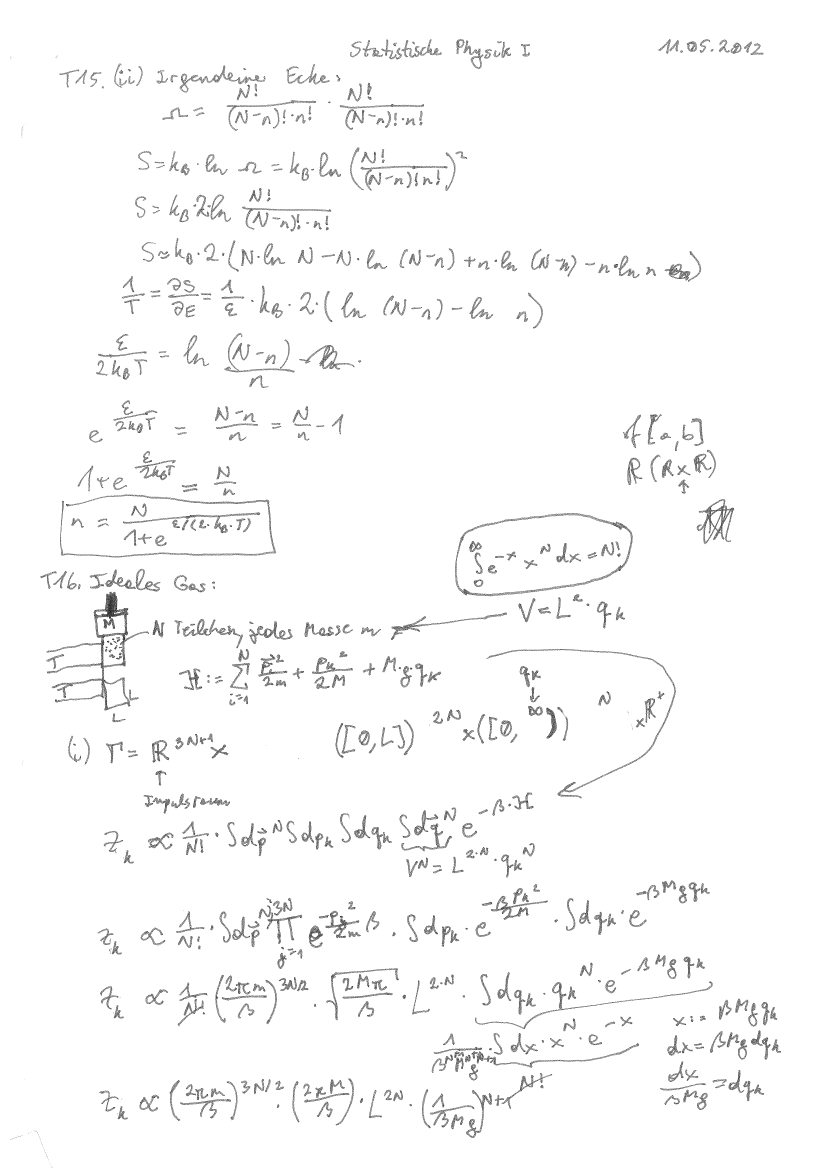 Statistische Physik I 11.05.2012
T15. (ii) Irgendeine Ecke:
Ω = N!/((N-n)!·n!) · N!/((N-n)!·n!)
S = k_B · ln Ω = k_B · ln (N!/((N-n)!n!))²
S = k_B · 2 · ln N!/((N-n)!·n!)
S ≈ k_B · 2 · (N·ln N - N·ln (N-n) + n·ln (N-n) - n·ln n)
1/T = ∂S/∂E = 1/ε · k_B · 2 · (ln (N-n) - ln n)
ε/(2k_BT) = ln (N-n)/n
e^(ε/(2k_BT)) = (N-n)/n = N/n - 1
f[a,b]
R (R×R)
↑
1+e^(ε/(2k_BT)) = N/n
n = N/(1+e^(ε/(2·k_B·T)))
∫₀^∞ e^(-x) x^N dx = N!
T16. Ideales Gas:
M
N Teilchen, jedes Masse m
V = L² · q_k
T
T
L
L
H := Σ_(i=1)^N p⃗_i²/2m + p_k²/2M + M·g q_k
q_k
↓
(i) Γ = R^(3N+1) × ([0,L])^(2N) × ([0,∞))^N × R⁺
↑
Impulsraum
Z_k ∝ 1/N! · ∫dp⃗^N ∫dp_k ∫dq_k ∫dq⃗^N e^(-β·H)
V^N = L^(2·N) · q_k^N
Z_k ∝ 1/N! · ∫dp⃗^N ∏_(j=1)^(3N) e^(-p_j²/2m β) · ∫dp_k · e^(-βp_k²/2M) · ∫dq_k · e^(-βMgq_k)
Z_k ∝ 1/N! (2πm/β)^(3N/2) · √(2Mπ/β) · L^(2·N) · ∫dq_k · q_k^N · e^(-βMgq_k)
1/(β^(N+1)M^(N+1)g^(N+1)) · ∫dx · x^N · e^(-x)
N!
x := βMgq_k
dx = βMg dq_k
dx/(βMg) = dq_k
Z_k ∝ (2πm/β)^(3N/2) · (2πM/β) · L^(2N) · (1/(βMg))^(N+1)